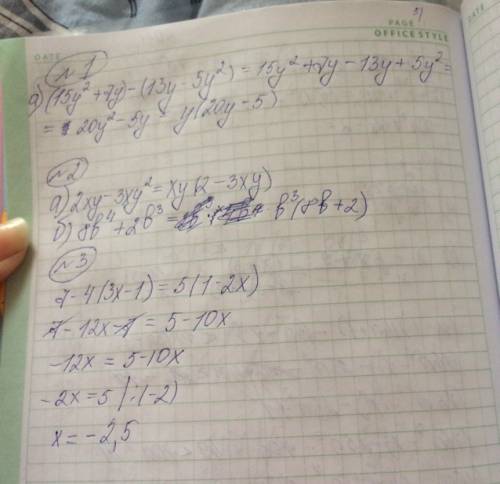 DATE
PAGE
OFFICE STYLE
№1
а) (15y² + 7y) - (13y - 5y²) = 15y² + 7y - 13y + 5y² =
= 20y² - 5y = y(20y - 5)
№2
а) 2xy - 3xy² = xy(2 - 3xy)
б) 8b⁴ + 2b³ = b³(8b + 2)
№3
7 - 4(3x - 1) = 5(1 - 2x)
7 - 12x - 7 = 5 - 10x
-12x = 5 - 10x
-2x = 5 | :(-2)
x = -2,5